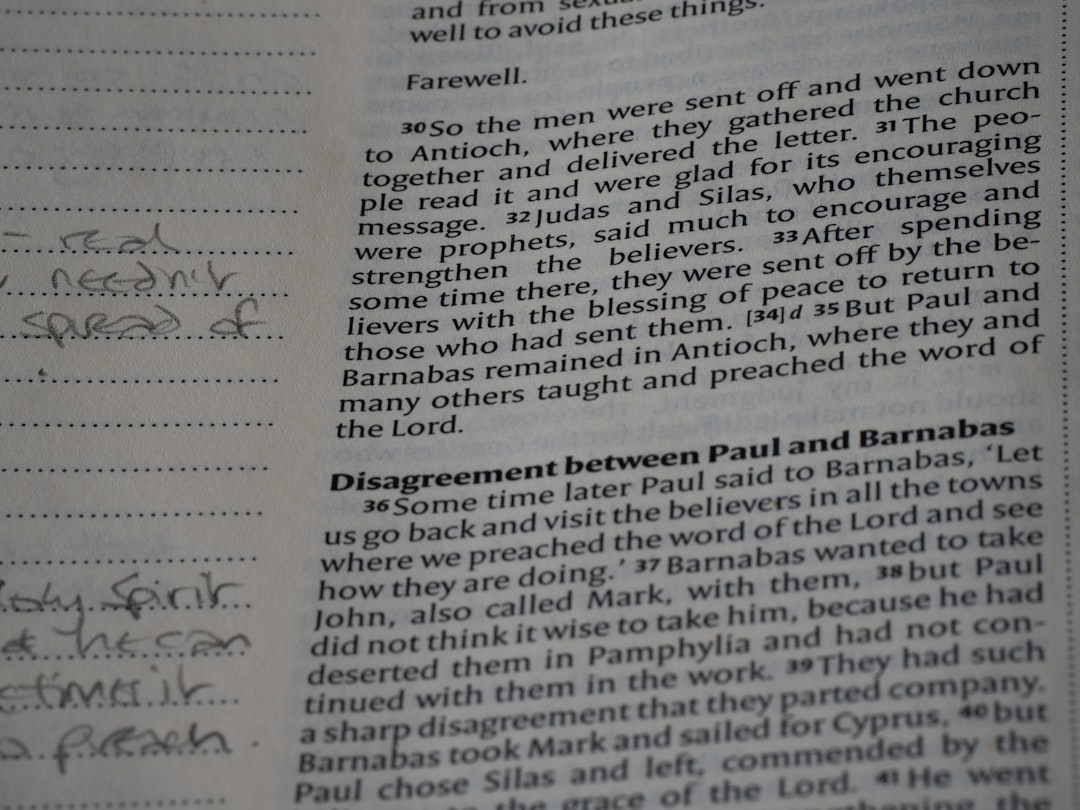 - real
needn't
spread of
Holy Spirit
he can
it
preach.
and from sexual
well to avoid these things.
Farewell.
30 So the men were sent off and went down
to Antioch, where they gathered the church
together and delivered the letter. 31 The peo-
ple read it and were glad for its encouraging
message. 32 Judas and Silas, who themselves
were prophets, said much to encourage and
strengthen the believers. 33 After spending
some time there, they were sent off by the be-
lievers with the blessing of peace to return to
those who had sent them. [34] d 35 But Paul and
Barnabas remained in Antioch, where they and
many others taught and preached the word of
the Lord.
Disagreement between Paul and Barnabas
36 Some time later Paul said to Barnabas, ‘Let
us go back and visit the believers in all the towns
where we preached the word of the Lord and see
how they are doing.’ 37 Barnabas wanted to take
John, also called Mark, with them, 38 but Paul
did not think it wise to take him, because he had
deserted them in Pamphylia and had not con-
tinued with them in the work. 39 They had such
a sharp disagreement that they parted company.
Barnabas took Mark and sailed for Cyprus, 40 but
Paul chose Silas and left, commended by the
to the grace of the Lord. 41 He went
the